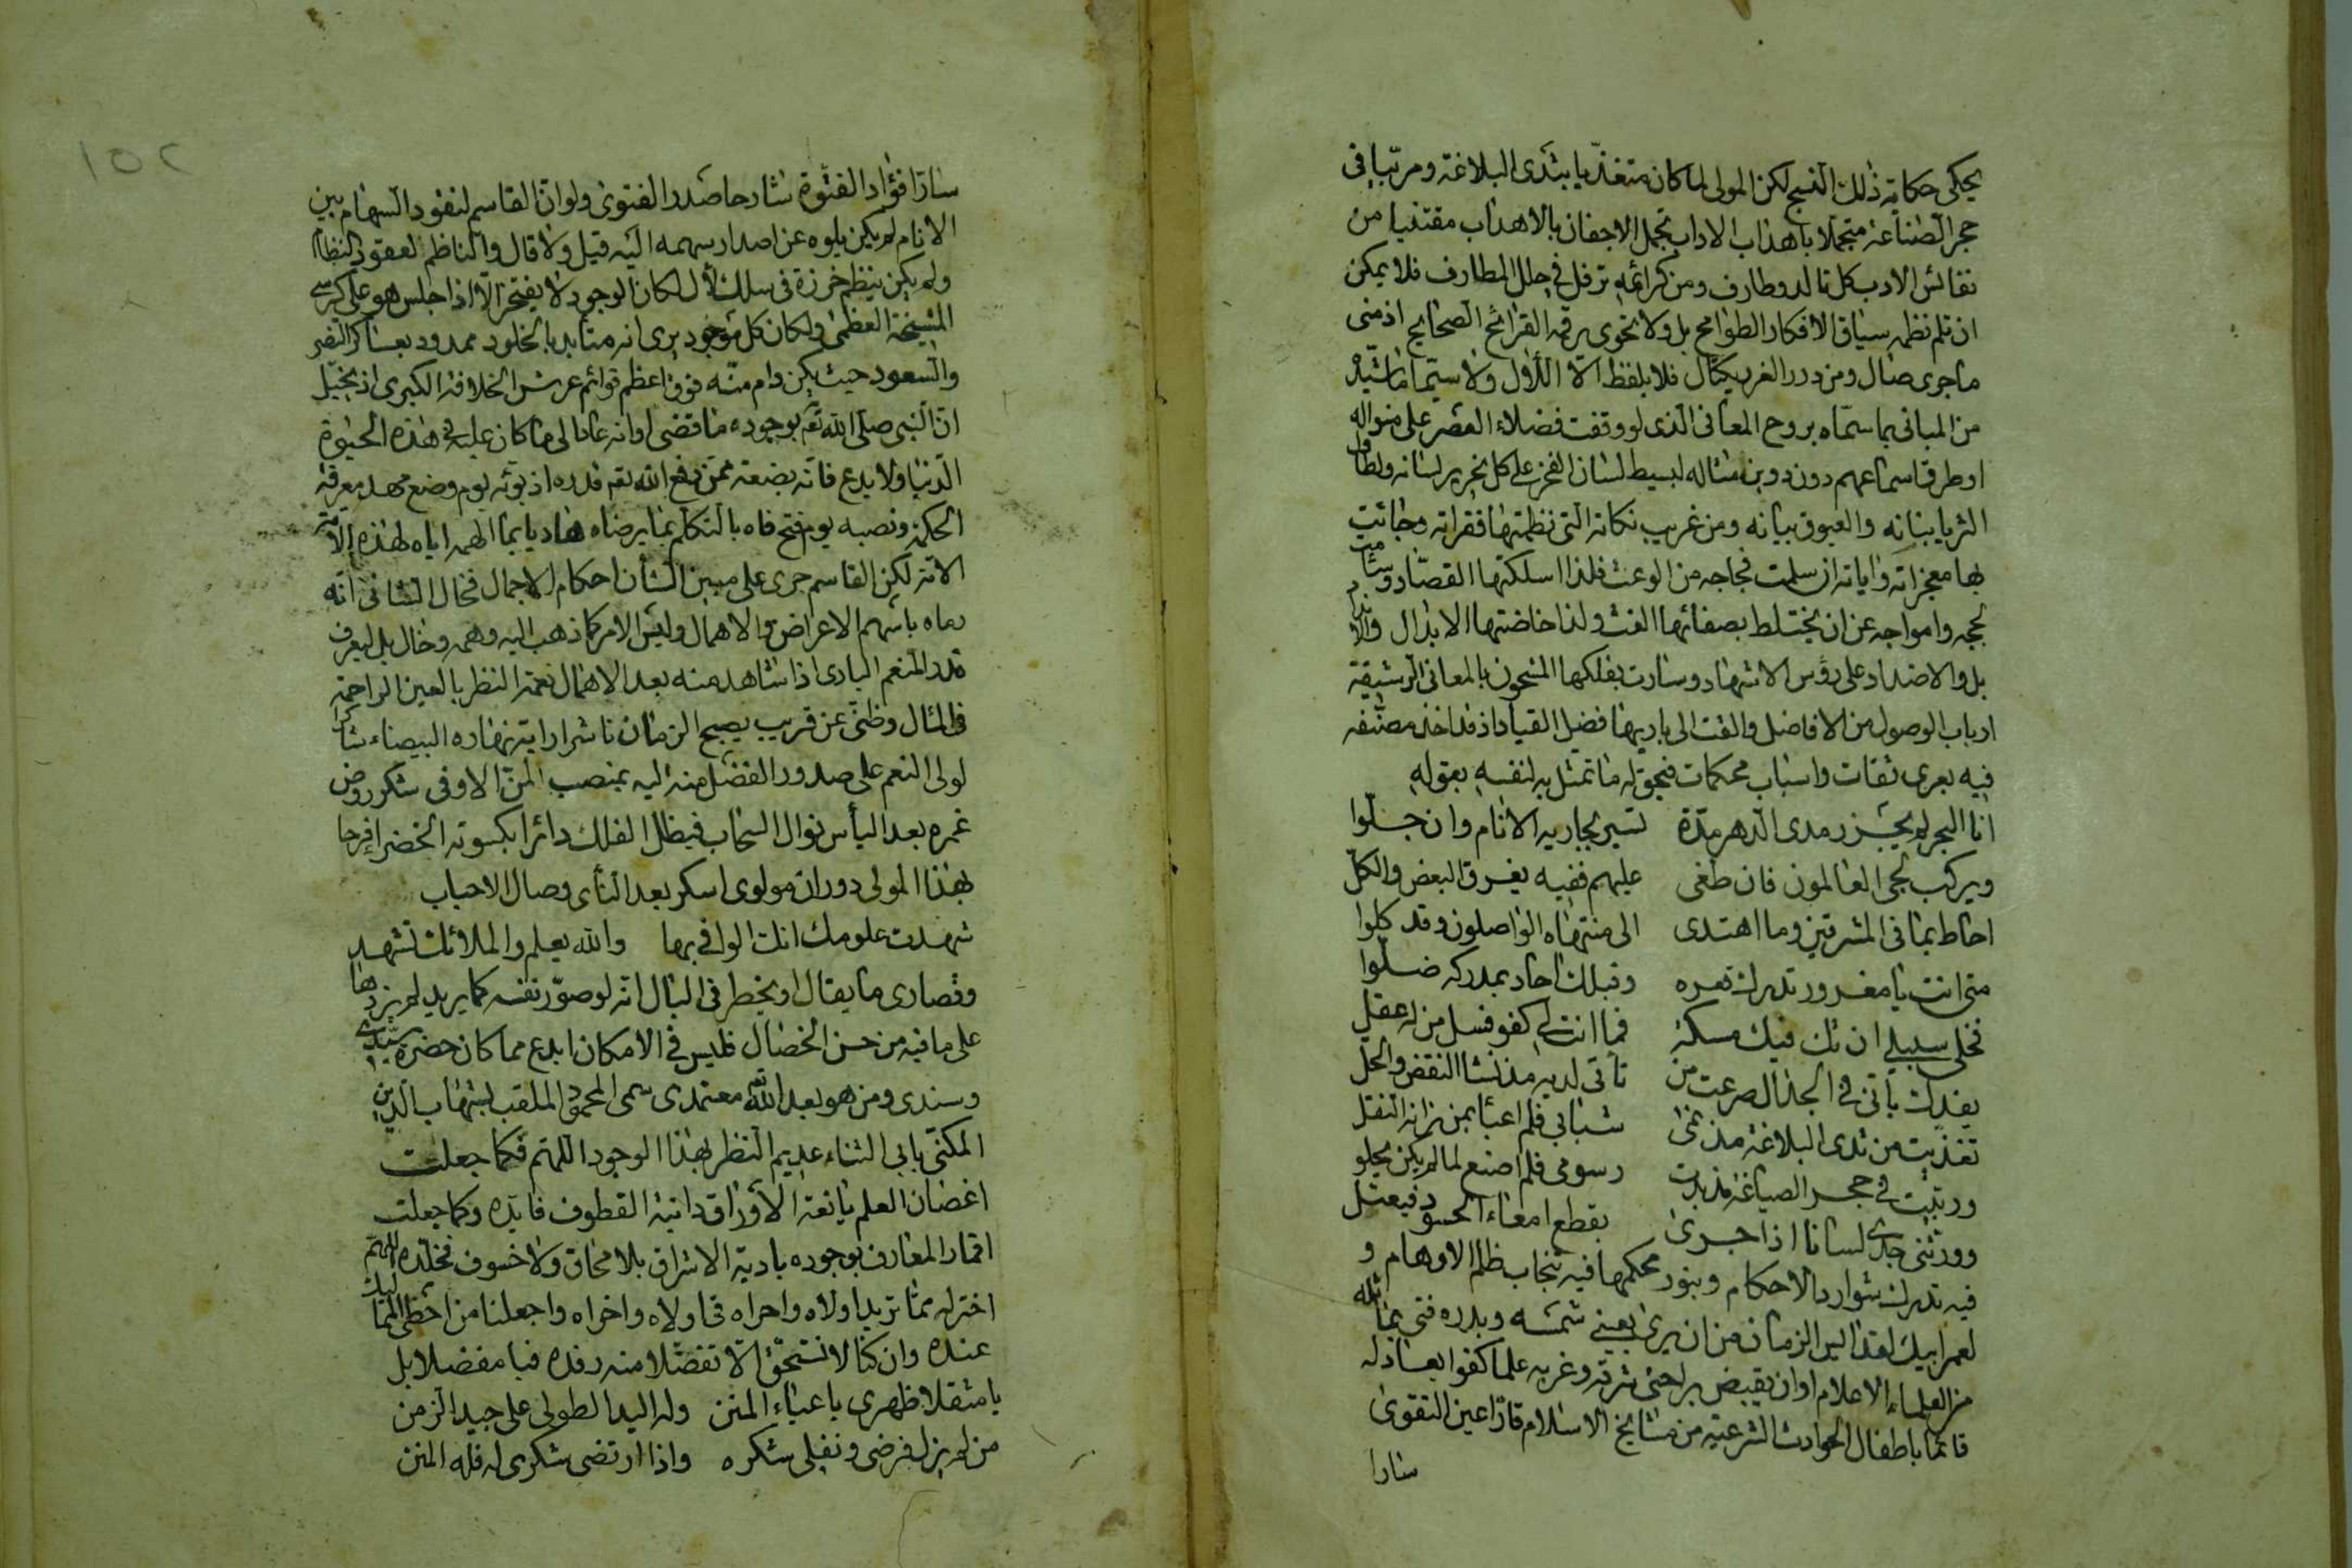 يحكى حكايته ذلك النسج لكن المولى لما كان متغذيا بثدى البلاغة ومرتبا فى
حجر الصناعة متجملا باهداب الاداب تجمل الاجفان بالاهداب مقتنيا من
نفائس الادب كل تالد وطارف ومن كرائمه ترفل فى حلل المطارف فلا يمكن
ان تلم نظمه سياق الافكار الطوامح بل ولا تحوى رقمه القرائح الصحايح اذ متى
ما جرى صال ومن درر الغر يكتال فلا يلفظ الا اللؤل ولا سيما ما شيد
من المبانى بما سماه بروح المعانى الذى لو وقفت فضلاء العصر على منواله
او طرق اسماعهم دون دوين مثاله لبسط لسان الفخر على كل نحرير لسانه ولطاول
الثريا ببنانه والعيوق ببيانه ومن غريب نكاته التى نظمتها فقراته وجائت
بها معجزاته واياته ان سلمت فجاجه من الوعث فلذا سلكتها القصاد وسامت
لججه وامواجه عن ان يختلط بصفائها الغث ولذا خاضتها الابدال
بل والاضداد على رؤس الاشهاد وسارت بفلكها المشحون بالمعانى الرشيقة
ارباب الوصول من الافاضل والقت الى باريها فضل القياد اذ قد اخذ مصنفه
فيه بعرى ثقات واسباب محكمات فيحق له ما تمثل به لنفسه بقوله
انا البحر لم يجزر مدى الدهر مدة تسير بجاريه الانام وان جلوا
ويركب لجى العالمون فان طغى عليهم ففيه يغرق البعض والكل
احاط بما فى المشرقين وما اهتدى الى منتهاه الواصلون وقد كلوا
متى انت يا مغرور تدرك قعره وقبلك احاد بمدركه ضلوا
فخلى سبيلى ان تك فيك مسكة فما انت لى كفو فسل من له عقل
يفدك بأنى فى الجدال صرعت من تأتى لديه مذ نشا النقض والحل
تغذيت من ثدى البلاغة مذ نمى شبابى فلم اعبأ بمن زانه النقل
وربيت فى حجر الصياغة مذ بدت رسومى فلم اصنع لما لم يكن يحلو
وورثنى جدى لسانا اذا جرى يقطع امعاء الحسود فيعتل
فيه تدرك شوارد الاحكام وبنور محكمها فيه تنجاب ظلم الاوهام و
لعمر ابيك لقد اليس الزمان من ان يرى بعينى شمسه وبدره فتى يماثله
من العلماء الاعلام او ان يقبض براحتى شرقه وغربه علما كفوا يعادله
قائما باطفال الحوادث الشرعية من مشايخ الاسلام قارا عين التقوى
سارا
١٥٢
سارا فؤاد الفتوة شارحا صدر الفتوى ولو ان القاسم لنقود السهام بين
الانام لم يكن يلوه عن اصدار سهمه اليه قيل ولا قال والناظم لعقود النظام
ولم يكن ينظم خرزة فى سلك لأل لكان الوجود لا يفتخر الا اذا جلس هو على كرسى
المشيخة العظمى ولكان كل موجود يرى انه متأبد بالخلود ممدود بعساكر النصر
والسعود حيث يكن دام منه فوق اعظم قوائم عرش الخلافة الكبرى اذ يخيل
ان النبى صلى الله بوجوده ما قضى اوانه عاد الى ما كان عليه فى هذه الحيوة
الدنيا ولا بدع فانه بضعة ممن رفع الله قدره اذ بوئه يوم وضع مهد معرفة
الحكم ونصبه يوم فتح فاه بالتكلم بما يرضاه هاديا بما الهمه اياه لهذه الامة
الا انه لكن القاسم جرى على مبين الشأن احكام الاجمال فخال الشانى انه
رماه بأسهم الاعراض والاهمال وليس الامر كما ذهب اليه وهمه وخال بل ليعرف
قدر المنعم البارى اذا شاهد منه بعد الاهمال نعمة النظر بالعين الراحمة
فالمال وظنى عن قريب يصبح الزمان ناشرا راية نهاره البيضاء شاكرا
لولى النعم على صدور الفضل منه اليه بمنصب المن الاوفى شكر روض
غمره بعد اليأس نوال السحاب فيظل الفلك دائرا بكسوته الخضرا فرحا
بهذا المولى دوران مولوى اسكر بعد النأى وصال الاحباب
شهدت علومك انك الوافى بها والله يعلم والملائك تشهد
وقصارى ما يقال او يخطر فى البال انه لو صور نفسه كما يريد لم يزدها
على ما فيه من حسن الخصال فليس فى الامكان ابدع مما كان حضرة سيدى
وسندى ومن هو بعد الله معتمدى سمى المحمود الملقب بشهاب الدين
المكنى بابى الثناء عديم النظر بهذا الوجود اللهم فكما جعلت
اغصان العلم يانعة الاوراق دانية القطوف فايده وكما جعلت
اقمار المعارف بوجوده بادية الاشراق بلا محاق ولا خسوف فخلده اللهم
اختر له مما تريد اولاه واحراه فى اولاه واخراه واجعلنا من احظى المماليك
عنده وان كنا لا نستحق الا تفضلا منه رفده فيا مفضلا بل
يا مثقلا ظهرى باعباء المنن وله اليد الطولى على جيد الزمن
من لم يزل فرضى ونفلى شكره واذا ارتضى شكرى له فله المنن